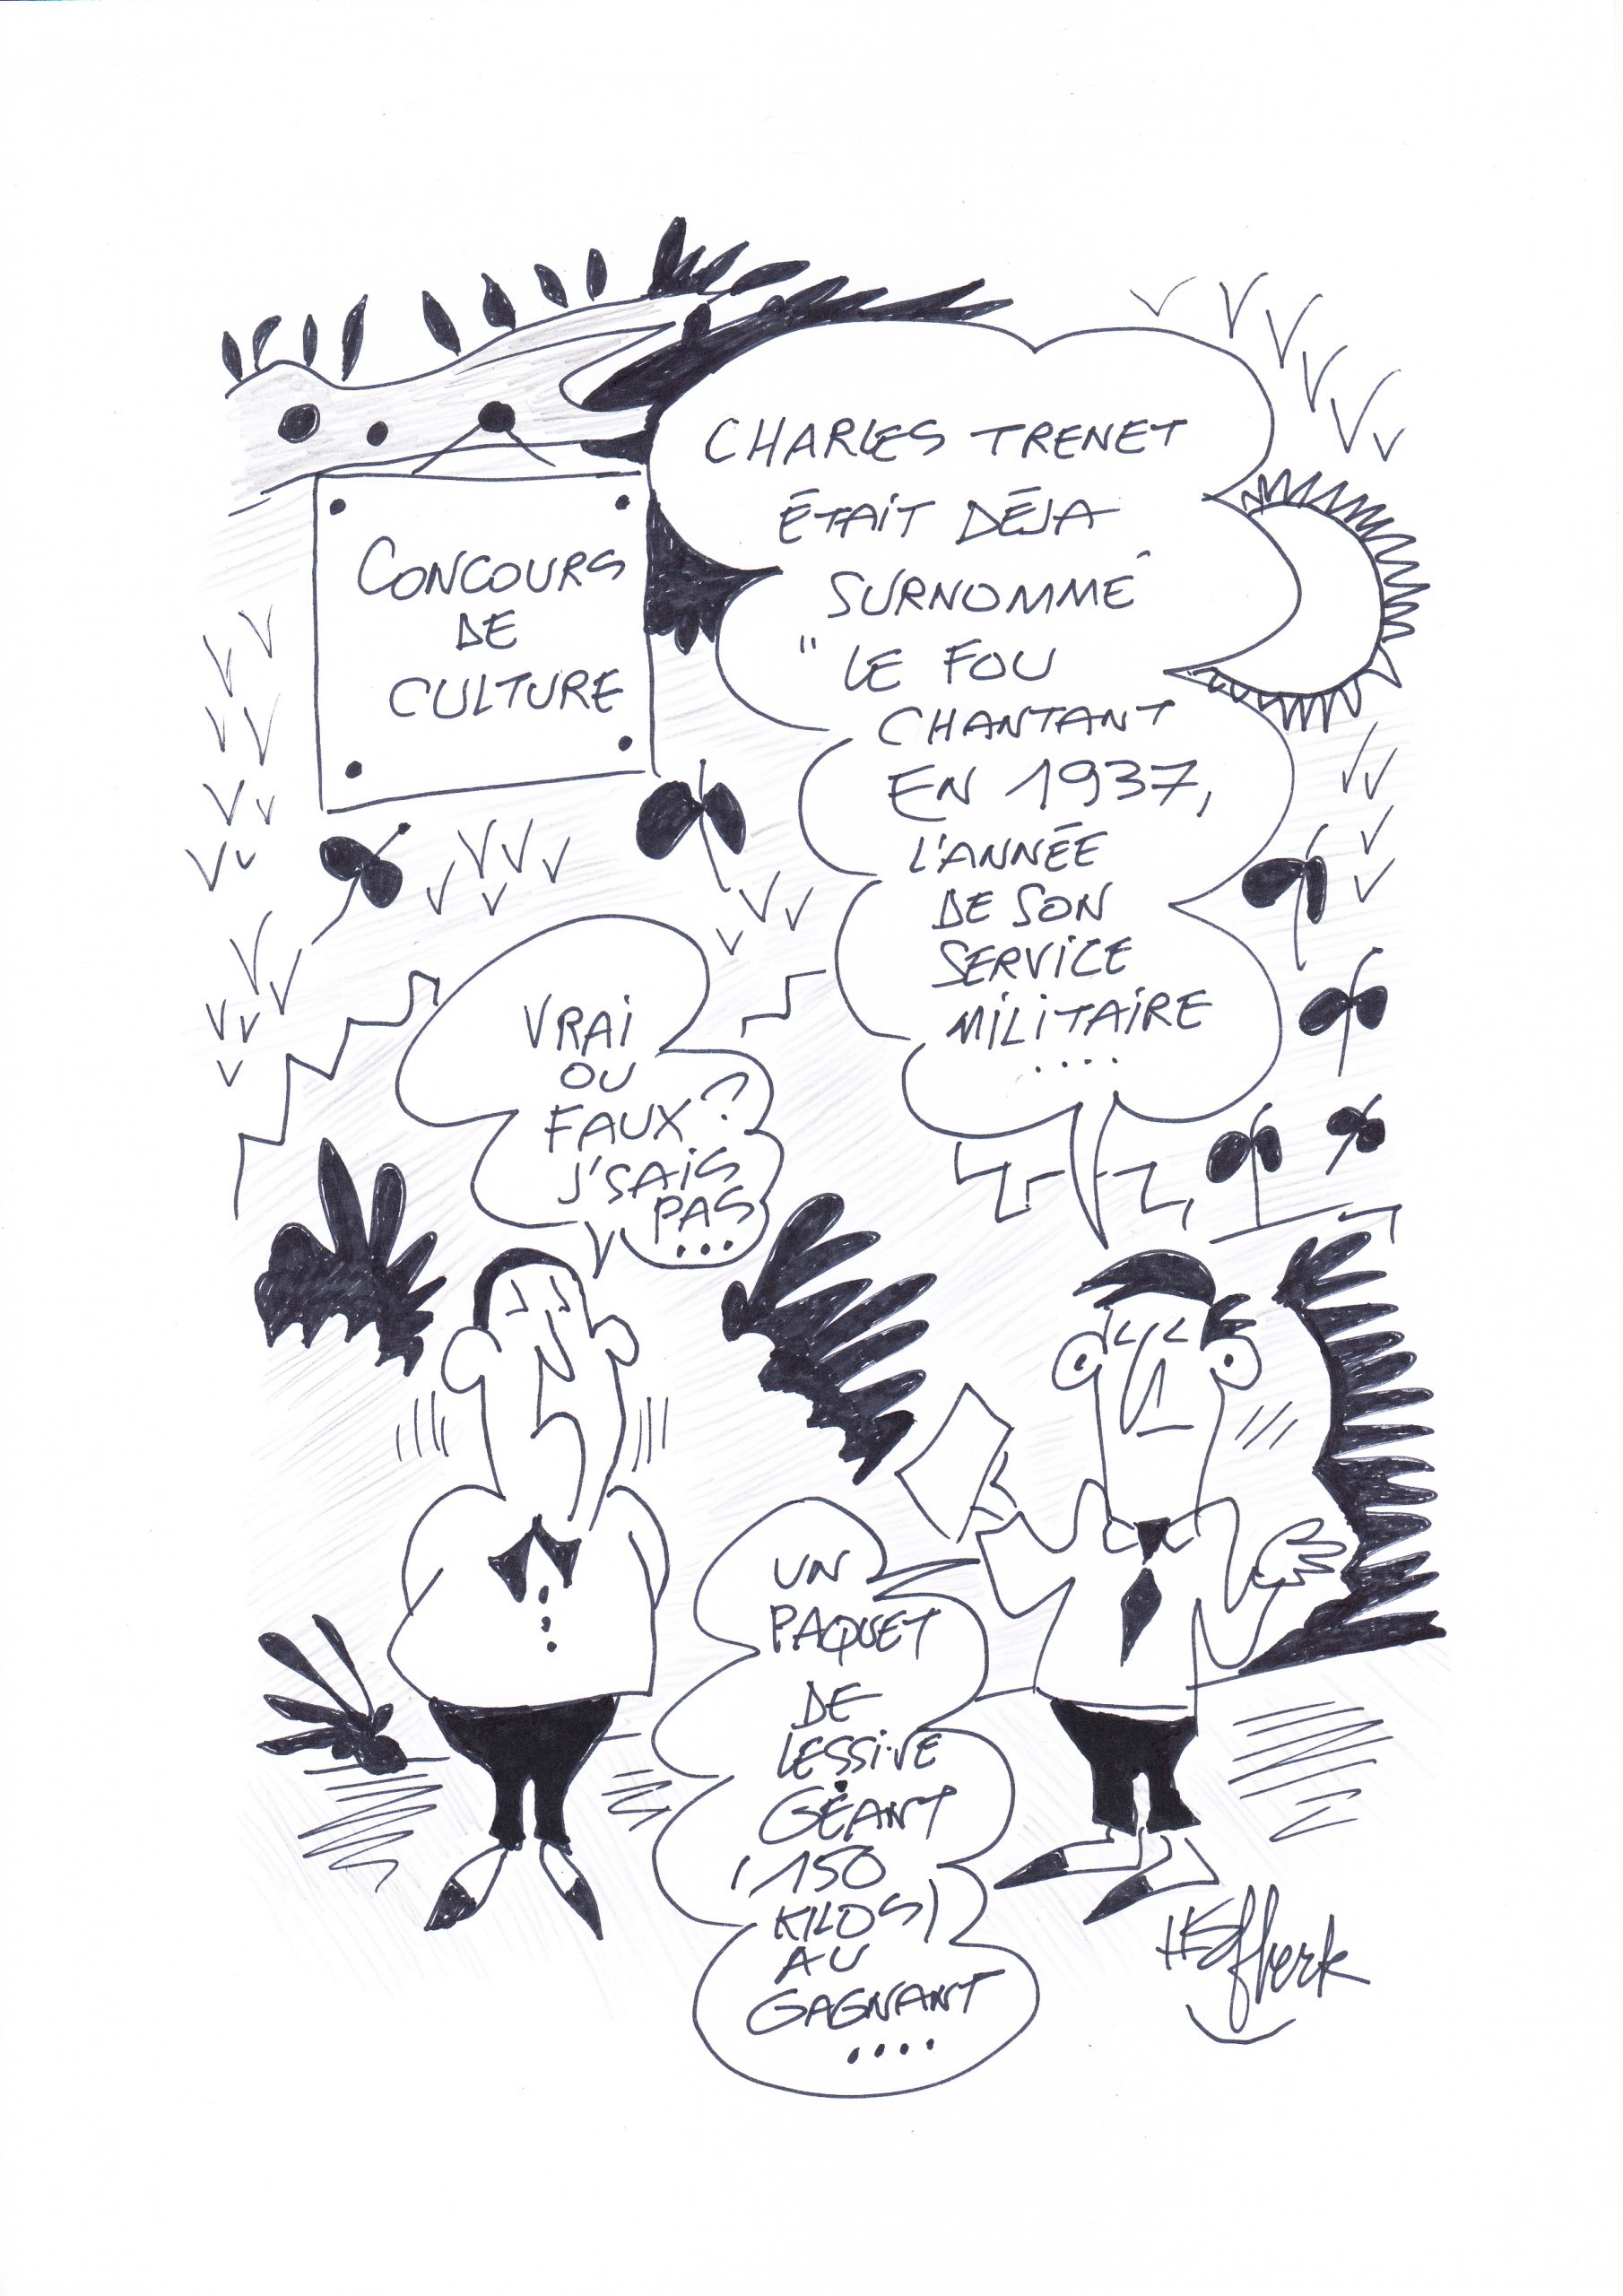 CONCOURS
DE
CULTURE
CHARLES TRENET
ÉTAIT DÉJA
SURNOMMÉ
" LE FOU
CHANTANT
EN 1937,
L'ANNÉE
DE SON
SERVICE
MILITAIRE
....
VRAI
OU
FAUX?
J'SAIS
PAS
...
UN
PAQUET
DE
LESSIVE
GÉANT
(150
KILOS)
AU
GAGNANT
....